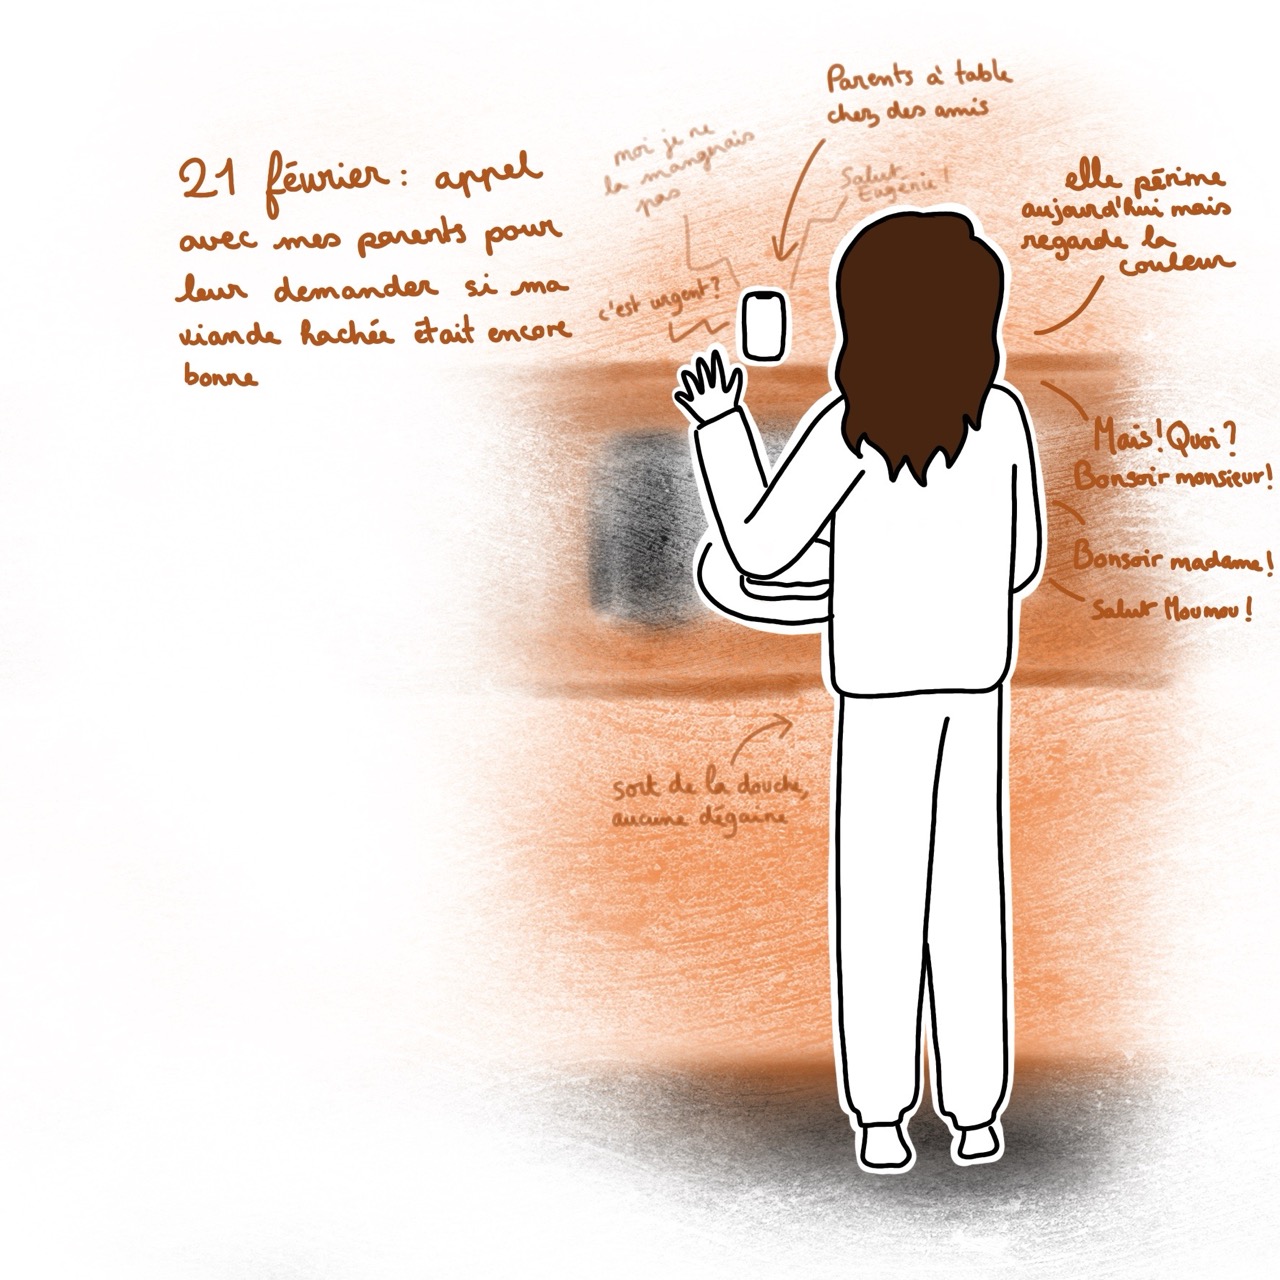 21 février : appel
avec mes parents pour
leur demander si ma
viande hachée était encore
bonne
Parents à table
chez des amis
moi je ne
la mangerais
pas
Salut
Eugénie !
c'est urgent ?
elle périme
aujourd'hui mais
regarde la
couleur
Mais ! Quoi ?
Bonsoir monsieur !
Bonsoir madame !
Salut Moumou !
sort de la douche,
aucune dégaine